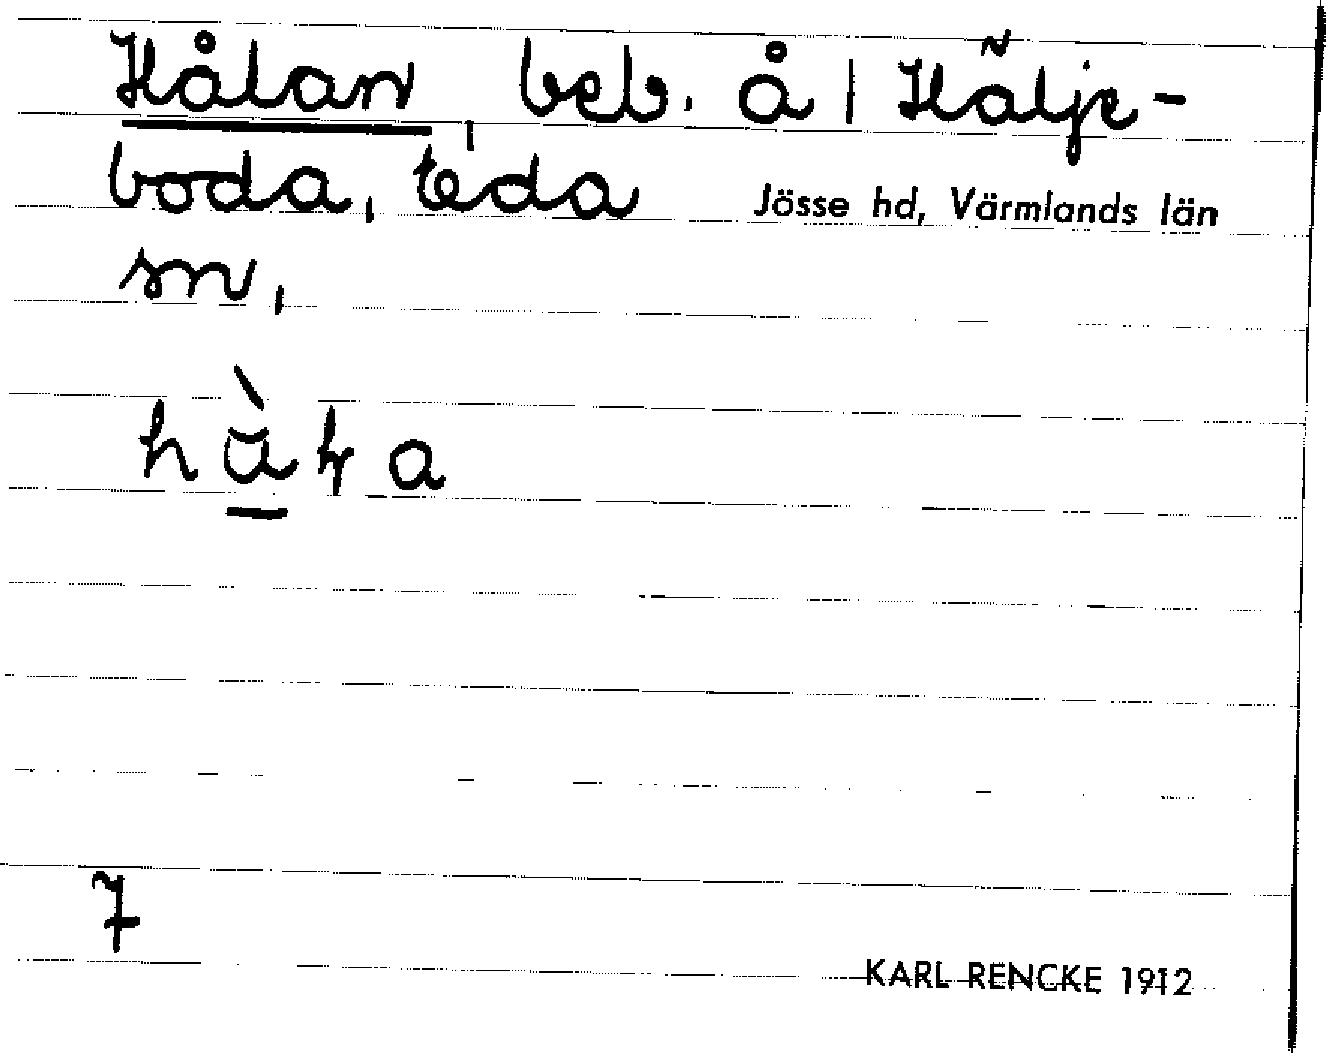 Hålan, beb. å | Hälje-
boda, Eda Jösse hd, Värmlands län
sn,
7
KARL RENCKE 1912